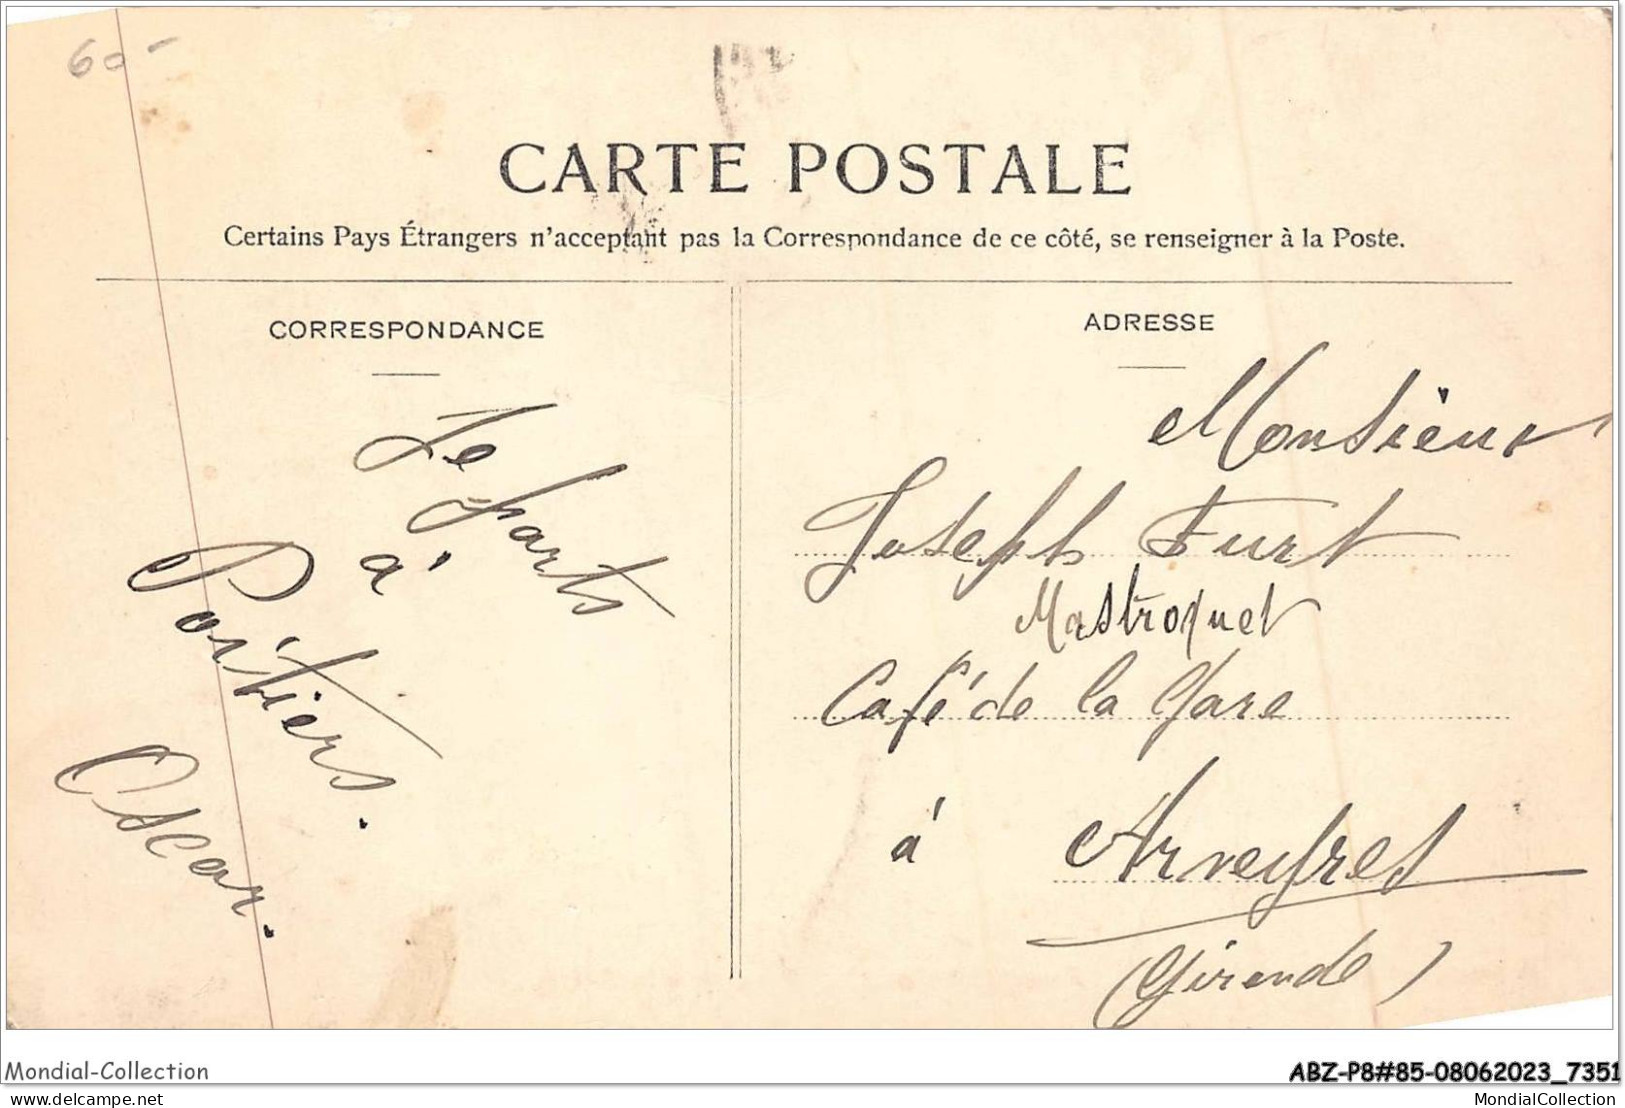 60-
CARTE POSTALE
Certains Pays Étrangers n'acceptant pas la Correspondance de ce côté, se renseigner à la Poste.
CORRESPONDANCE
Je parts
à
Poitiers.
Oscar.
ADRESSE
Monsieur
Joseph Furt
Mastroquet
Café de la Gare
à Arveyres
(Gironde)
Mondial-Collection
ABZ-P8#85-08062023_7351
delcampe.net
MondialCollection